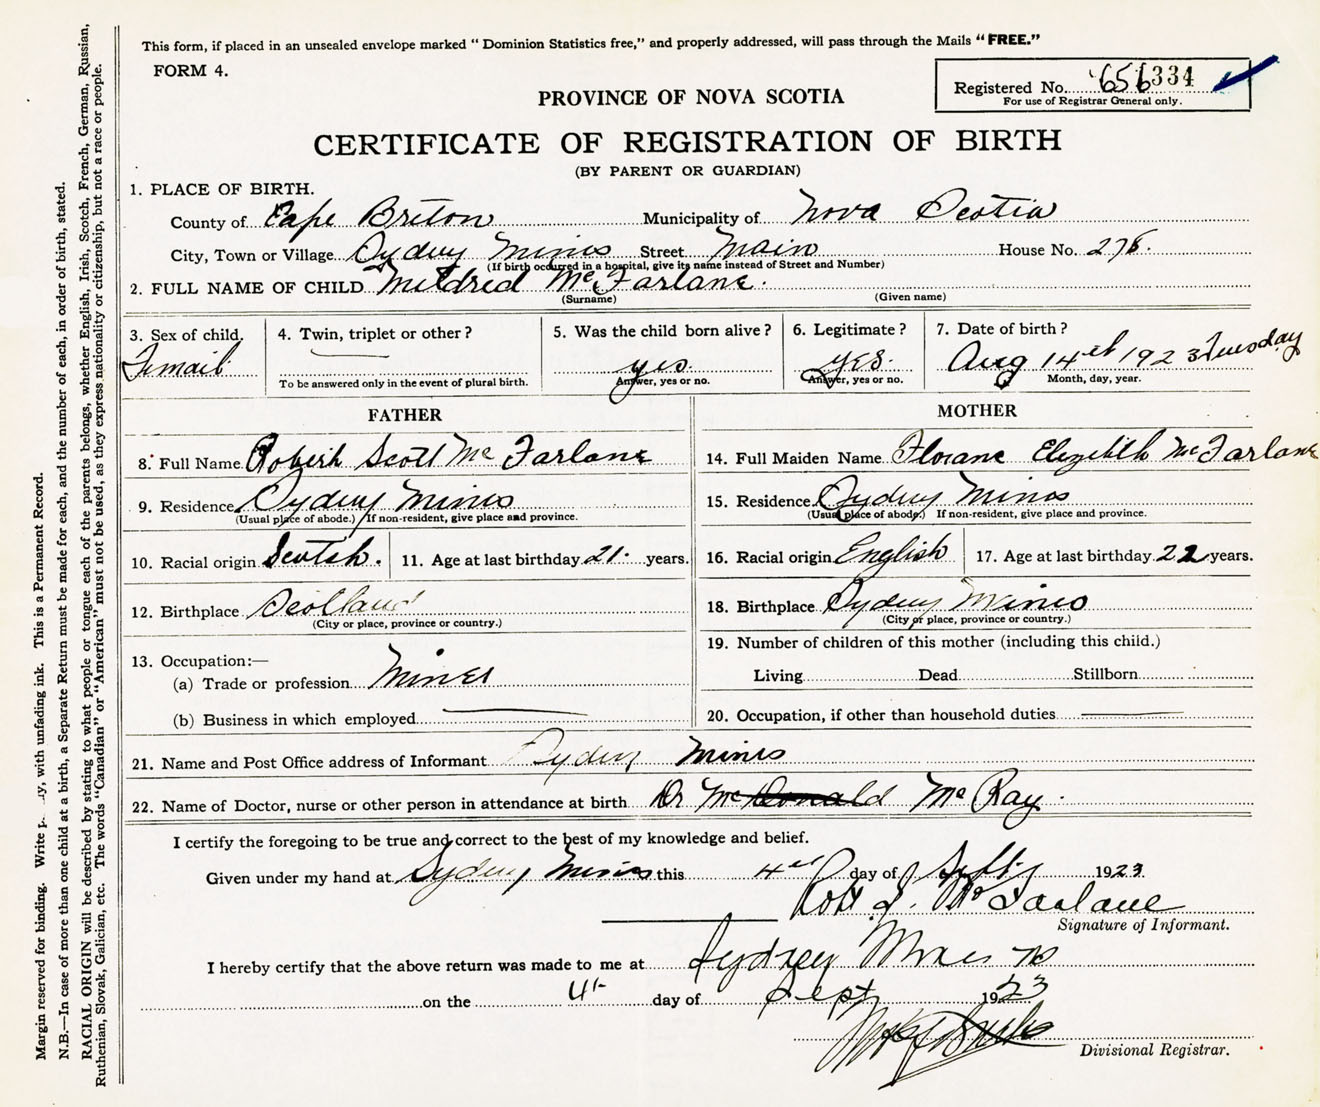 This form, if placed in an unsealed envelope marked " Dominion Statistics free," and properly addressed, will pass through the Mails "FREE."
FORM 4.
Registered No. 656334
For use of Registrar General only.
PROVINCE OF NOVA SCOTIA
CERTIFICATE OF REGISTRATION OF BIRTH
(BY PARENT OR GUARDIAN)
1. PLACE OF BIRTH.
County of Cape Breton Municipality of Nova Scotia
City, Town or Village Sydney Mines Street Main House No. 278.
(If birth occurred in a hospital, give its name instead of Street and Number)
2. FULL NAME OF CHILD Mildred McFarlane.
(Surname) (Given name)
3. Sex of child. 4. Twin, triplet or other? 5. Was the child born alive? 6. Legitimate? 7. Date of birth?
Femail yes. yes. Aug 14th 1923 Tuesday
To be answered only in the event of plural birth. Answer, yes or no. Answer, yes or no. Month, day, year.
FATHER MOTHER
8. Full Name Robert Scott McFarlane 14. Full Maiden Name Elizebeth McFarlane
9. Residence Sydney Mines 15. Residence Sydney Mines
(Usual place of abode.) If non-resident, give place and province. (Usual place of abode.) If non-resident, give place and province.
10. Racial origin Scotch. 11. Age at last birthday 21. years. 16. Racial origin English 17. Age at last birthday 22 years.
12. Birthplace Scotland 18. Birthplace Sydney Mines
(City or place, province or country.) (City or place, province or country.)
19. Number of children of this mother (including this child.)
13. Occupation:—
(a) Trade or profession Miner Living Dead Stillborn
(b) Business in which employed 20. Occupation, if other than household duties
21. Name and Post Office address of Informant Sydney Mines
22. Name of Doctor, nurse or other person in attendance at birth Dr McDonald McRay.
I certify the foregoing to be true and correct to the best of my knowledge and belief.
Given under my hand at Sydney Mines this 4th day of 1923
Robt S. McFarlane
Signature of Informant.
I hereby certify that the above return was made to me at Sydney Mines NS
on the 4th day of Sept 1923
Divisional Registrar.
Margin reserved for binding. Write with unfading ink. This is a Permanent Record.
N.B.—In case of more than one child at a birth, a Separate Return must be made for each, and the number of each, in order of birth, stated.
RACIAL ORIGIN will be described by stating to what people or tongue each of the parents belongs, whether English, Irish, Scotch, French, German, Russian,
Ruthenian, Slovak, Galician, etc. The words "Canadian" or "American" must not be used, as they express nationality or citizenship, but not a race or people.